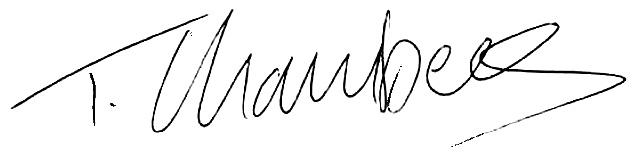 T. Chambers